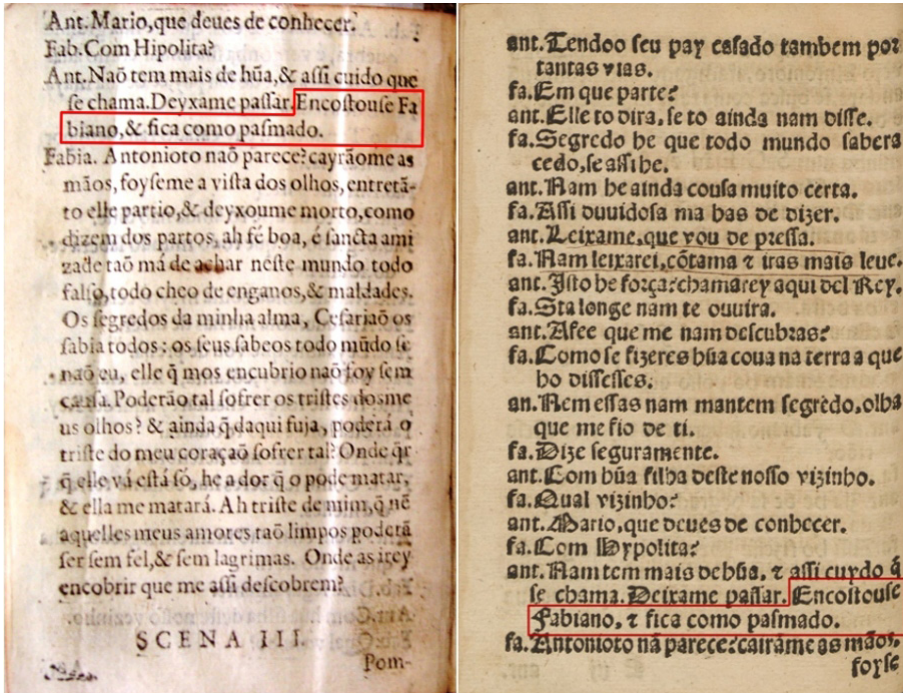 Ant. Mario, que deues de conhecer.
Fab. Com Hipolita?
Ant. Naõ tem mais de hũa, & assi cuido que
se chama. Deyxame passar. Encostouse Fa
biano, & fica como pasmado.
Fabia. Antonioto naõ parece? cayrãome as
mãos, foyseme a vista dos olhos, entretã-
to elle partio, & deyxoume morto, como
dizem dos partos, ah fé boa, é sancta ami
zade taõ má de achar neste mundo todo
falso, todo cheo de enganos, & maldades.
Os segredos da minha alma, Cesariaõ os
sabia todos : os seus sabeos todo mũdo se
naõ eu, elle q̃ mos encubrio naõ foy sem
causa. Poderão tal sofrer os tristes dosme
us olhos? & ainda q̃ daqui fuja, poderá o
triste do meu coraçaõ sofrer tal? Onde q̃r
q̃ elle vá está só, he a dor q̃ o pode matar,
& ella me matará. Ah triste de mim, q̃ nẽ
aquelles meus amores taõ limpos poderã
ser sem fel, & sem lagrimas. Onde as irey
encobrir que me assi descobrem?
SCENA III.
Pom-
ant. Tendoo seu pay casado tambem por
tantas vias.
fa. Em que parte?
ant. Elle to dira, se to ainda nam disse.
fa. Segredo he que todo mundo sabera
cedo, se assi he.
ant. Nam he ainda cousa muito certa.
fa. Assi duuidosa ma has de dizer.
ant. Leixame, que vou de pressa.
fa. Nam leixarei, cõtama ⁊ iras mais leue.
ant. Isto he força? chamarey aqui del Rey.
fa. Sta longe nam te ouuira.
ant. Afee que me nam descubras?
fa. Como se fizeres hũa coua na terra a que
ho dissesses.
an. Nem essas nam mantem segredo, olha
que me fio de ti.
fa. Dize seguramente.
ant. Com hũa filha deste nosso vizinho.
fa. Qual vizinho?
ant. Mario, que deues de conhecer.
fa. Com Hypolita?
ant. Nam tem mais dehũa, ⁊ assi cuydo q̃
se chama. Deixame passar. Encostouse
Fabiano, ⁊ fica como pasmado.
fa. Antonioto nã parece? cairãme as mãos,
foyse